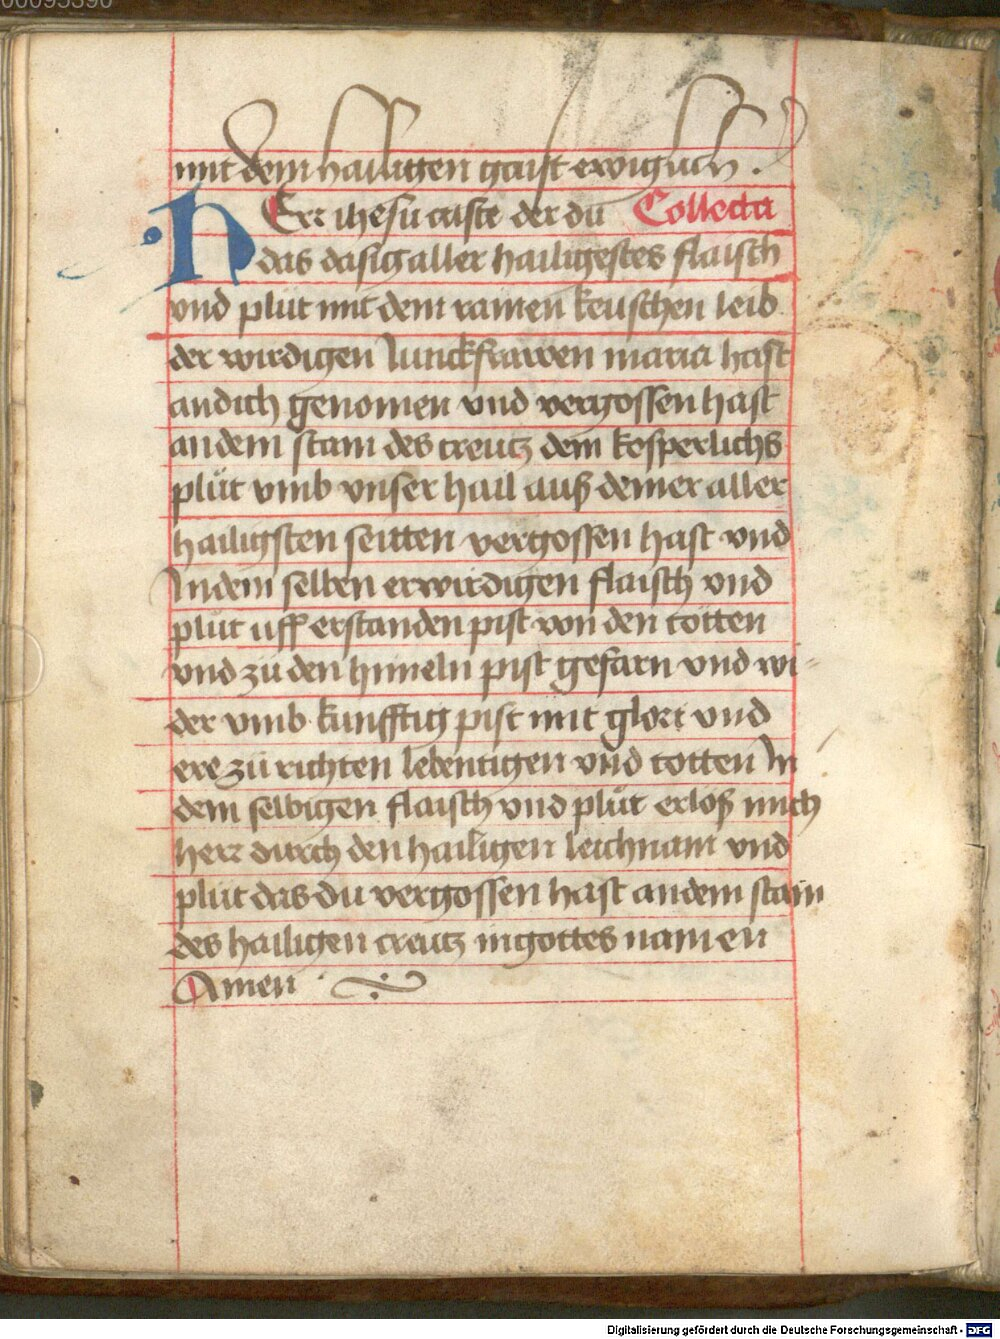 00095390
mit dem hailigen gaist ewigclich .
HErr ihesu criste der du Collecta
das dasig aller hailigestes flaisch
vnd plůt mit dem rainen keuschen leib
der wirdigen Iunckfrawen maria hast
an dich genomen vnd vergossen hast
an dem stam des creutz dem kosperlichs
plůt vmb vnser hail auß deiner aller
hailigsten seitten vergossen hast vnd
In dem selben erwirdigen flaisch vnd
plůt uff erstanden pist von den totten
vnd zu den himeln pist gefarn vnd wi-
der vmb kunfftig pist mit glori vnd
ere zů richten lebentigen vnd totten In
dem selbigen flaisch vnd plůt erloß mich
herr durch den hailigen leichnam vnd
plůt das du vergossen hast an dem stam
des hailigen creutz in gottes namen
Amen
Digitalisierung gefördert durch die Deutsche Forschungsgemeinschaft - DFG